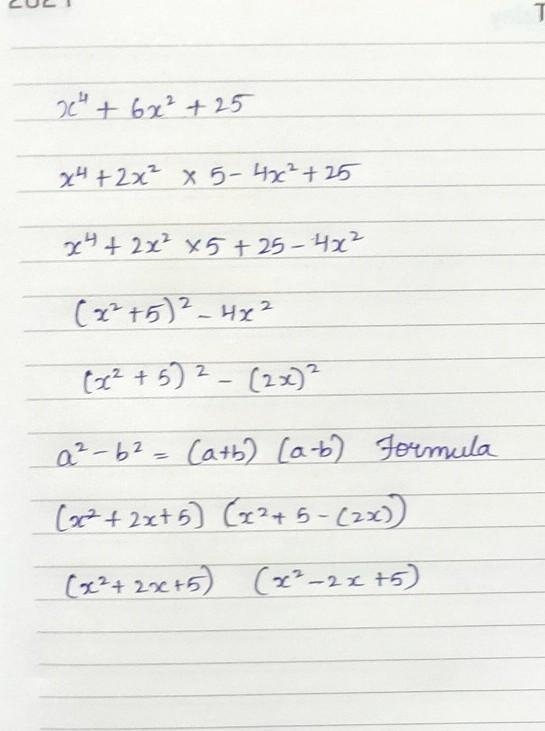 x⁴ + 6x² + 25
x⁴ + 2x² × 5 - 4x² + 25
x⁴ + 2x² × 5 + 25 - 4x²
(x² + 5)² - 4x²
(x² + 5)² - (2x)²
a² - b² = (a+b) (a-b) Formula
(x² + 2x + 5) (x² + 5 - (2x))
(x² + 2x + 5) (x² - 2x + 5)